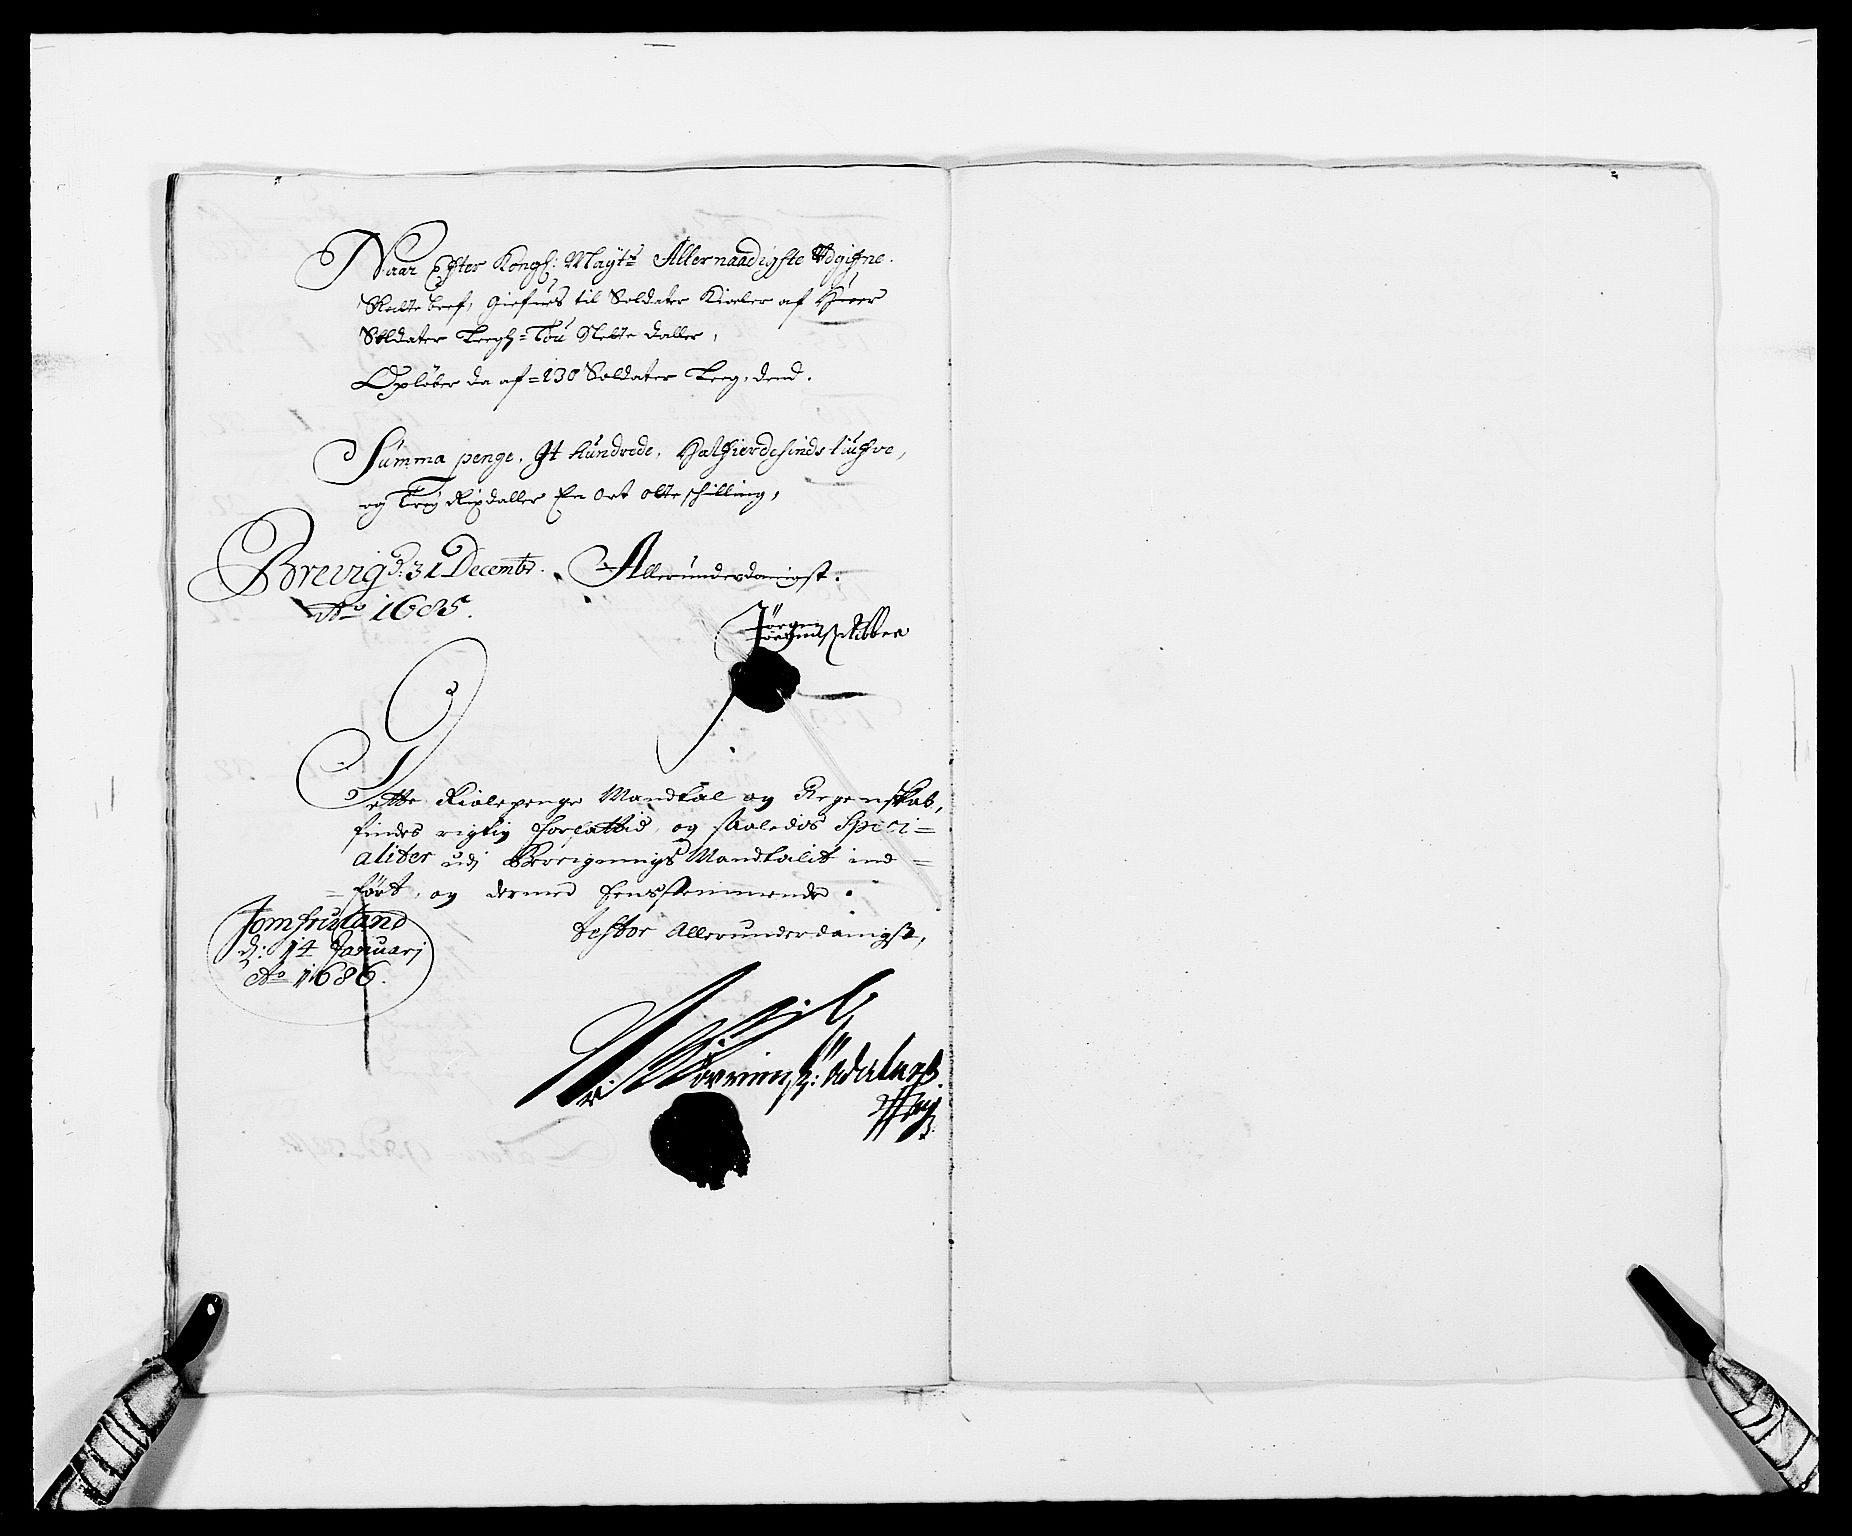 Naar Efter Kongl: Mayts Allernaadigste Udgifne
Skatte bref, giefues til Soldater Kioler af Huer
Soldater Leegh = Tou Slette daller,
Opløber da af = 130 Soldater Leeg, dend.
Summa penge, It hundrede, Halfierdesinds tiufve,
og Trej Rixdaller En Ort otte schilling,
Brevig d: 31 Decembr. Allerunderdanigst.
Ao 1685.
Jørgen
Dette Kiolepenge Mandtal og Regenskab,
findes rigtig forfattid, og saaledis Speci=
aliter udj Mandtalit ind=
=ført, og dermed ofensstemmende.
Jomfruland
d: 14 Januarj
Ao 1686.
testor Allerunderdanigst,